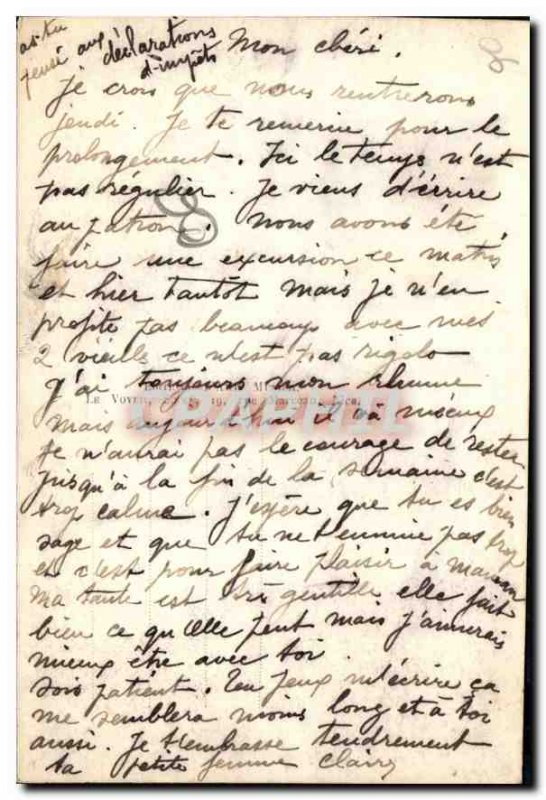 as-tu
pensé aux déclarations
d'impôts
Mon chéri.
Je crois que nous rentrerons
jeudi. Je te remercie pour le
prolongement. Ici le temps n'est
pas régulier. Je viens d'écrire
au patron. Nous avons été
faire une excursion ce matin
et hier tantôt mais je n'en
profite pas beaucoup avec mes
2 vieilles ce n'est pas rigolo
J'ai toujours mon rhume
LE VOYEUR
mais aujourd'hui il va mieux
Je n'aurai pas le courage de rester
jusqu'à la fin de la semaine c'est
trop calme. J'espère que tu es bien
sage et que tu ne t'ennuie pas trop
et c'est pour faire plaisir à maman
ma tante est très gentille elle fait
bien ce qu'elle peut mais j'aimerais
mieux être avec toi
sois patient. Tu peux m'écrire ça
me semblera moins long et à toi
aussi. Je t'embrasse tendrement
ta petite femme Claire